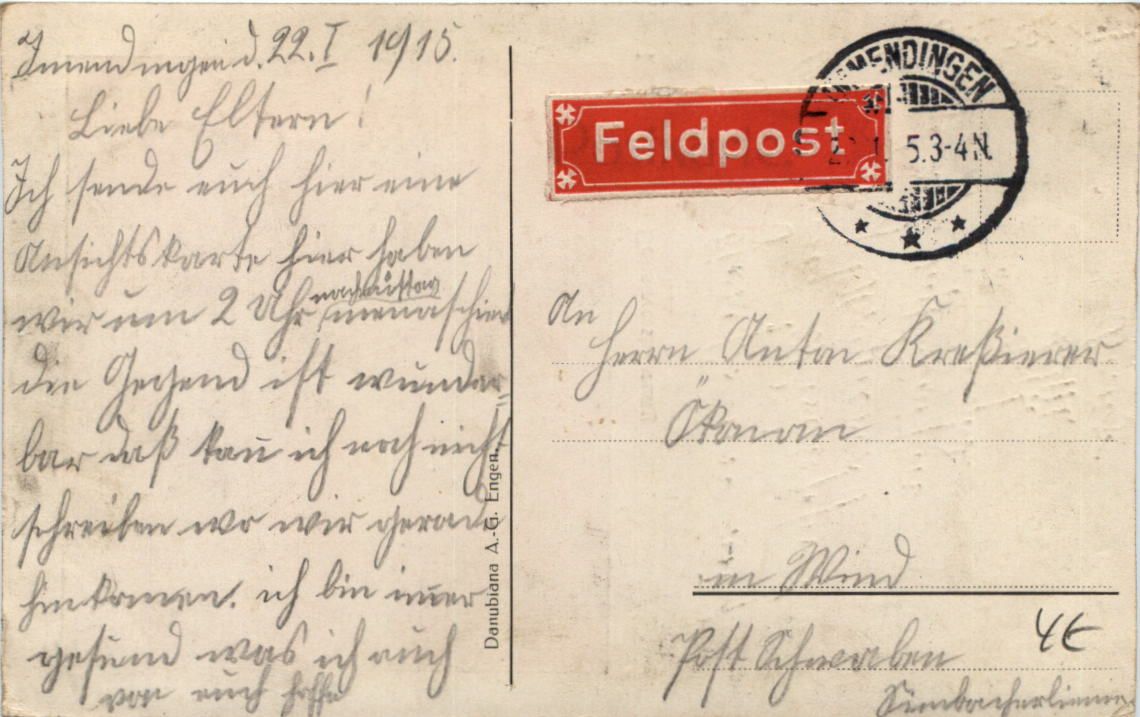 Immendingen d. 22. I 1915.
Liebe Eltern!
Ich sende euch hier eine
Ansichtskarte hier haben
wir um 2 Uhr nachmittag menaschirt
die Gegend ist wunder-
bar daß kan̄ ich noch nicht
schreiben wo wir gerade
hinkom̄en. ich bin im̄er
gesund was ich auch
von euch hoffe
Danubiana A.-G. Engen.
Feldpost
IMMENDINGEN
5.3-4N.
An
Herrn Anton Kreßierer
Ökonom
in Wind
Post Schwaben
Simbacherlinie
4€